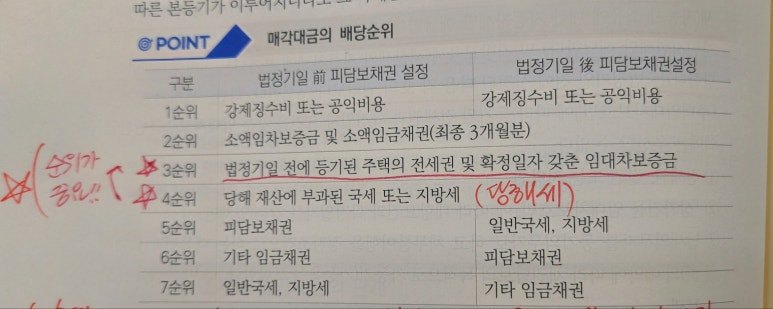 POINT 매각대금의 배당순위
구분 법정기일 前 피담보채권 설정 법정기일 後 피담보채권설정
1순위 강제징수비 또는 공익비용 강제징수비 또는 공익비용
2순위 소액임차보증금 및 소액임금채권(최종 3개월분)
3순위 법정기일 전에 등기된 주택의 전세권 및 확정일자 갖춘 임대차보증금
순위가
중요!!
4순위 당해 재산에 부과된 국세 또는 지방세 (당해세)
5순위 피담보채권 일반국세, 지방세
6순위 기타 임금채권 피담보채권
7순위 일반국세, 지방세 기타 임금채권